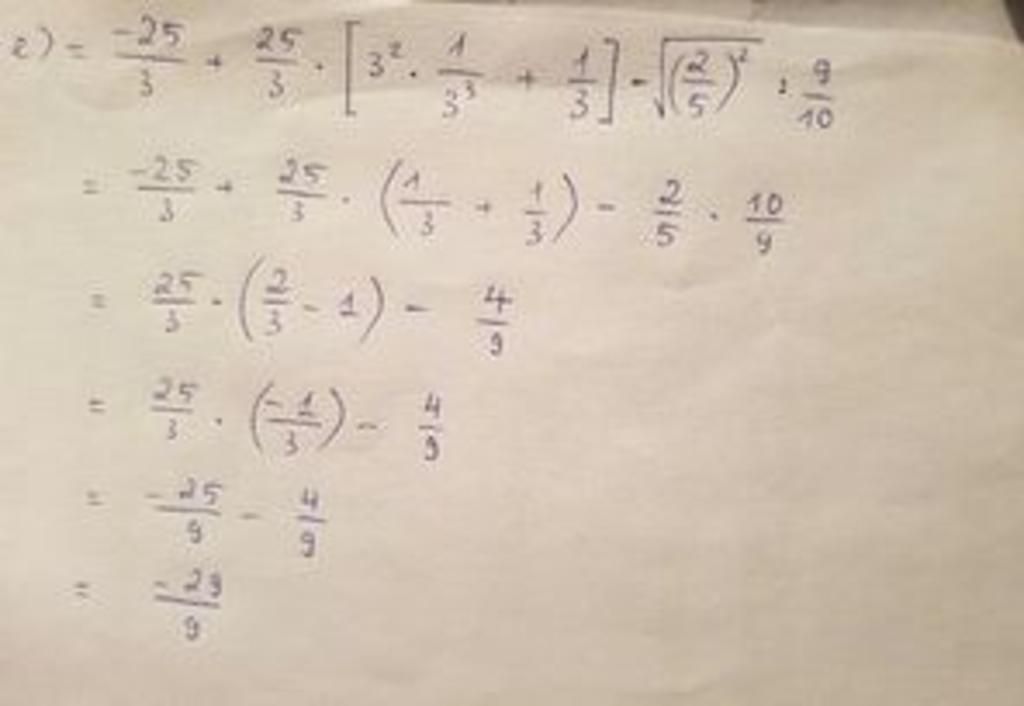 2) = -25/3 + 25/3 · [3² · 1/3³ + 1/3] - √(2/5)² : 9/10
= -25/3 + 25/3 · (1/3 + 1/3) - 2/5 · 10/9
= 25/3 · (2/3 - 1) - 4/9
= 25/3 · (-1/3) - 4/9
= -25/9 - 4/9
= -29/9